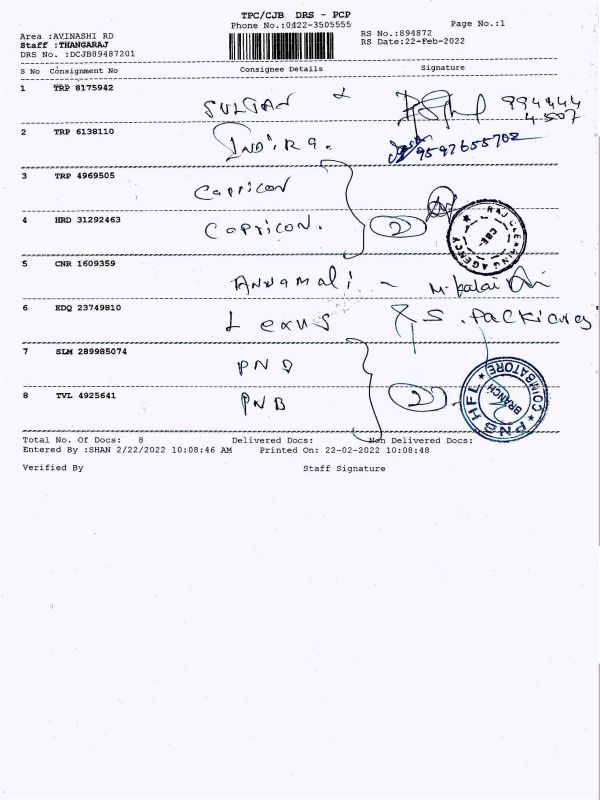 TPC/CJB DRS - PCP
Phone No.:0422-3505555
Page No.:1
Area :AVINASHI RD
Staff :THANGARAJ
DRS No. :DCJB89487201
RS No.:894872
RS Date:22-Feb-2022
S No Consignment No Consignee Details Signature
1 TRP 8175942
SULTAN
994444
4507
2 TRP 6138110
INDIRA.
9597655702
3 TRP 4969505
Capricon
4 HRD 31292463
Capricon. 2
RAJ CLEARING AGENCY
CBE
5 CNR 1609359
Annamali - M.
6 EDQ 23749810
Lexus S.
7 SLM 289985074
PNB
8 TVL 4925641
PNB 2
PNB HFL
COIMBATORE
BRANCH
Total No. Of Docs: 8 Delivered Docs: Non Delivered Docs:
Entered By :SHAN 2/22/2022 10:08:46 AM Printed On: 22-02-2022 10:08:48
Verified By Staff Signature